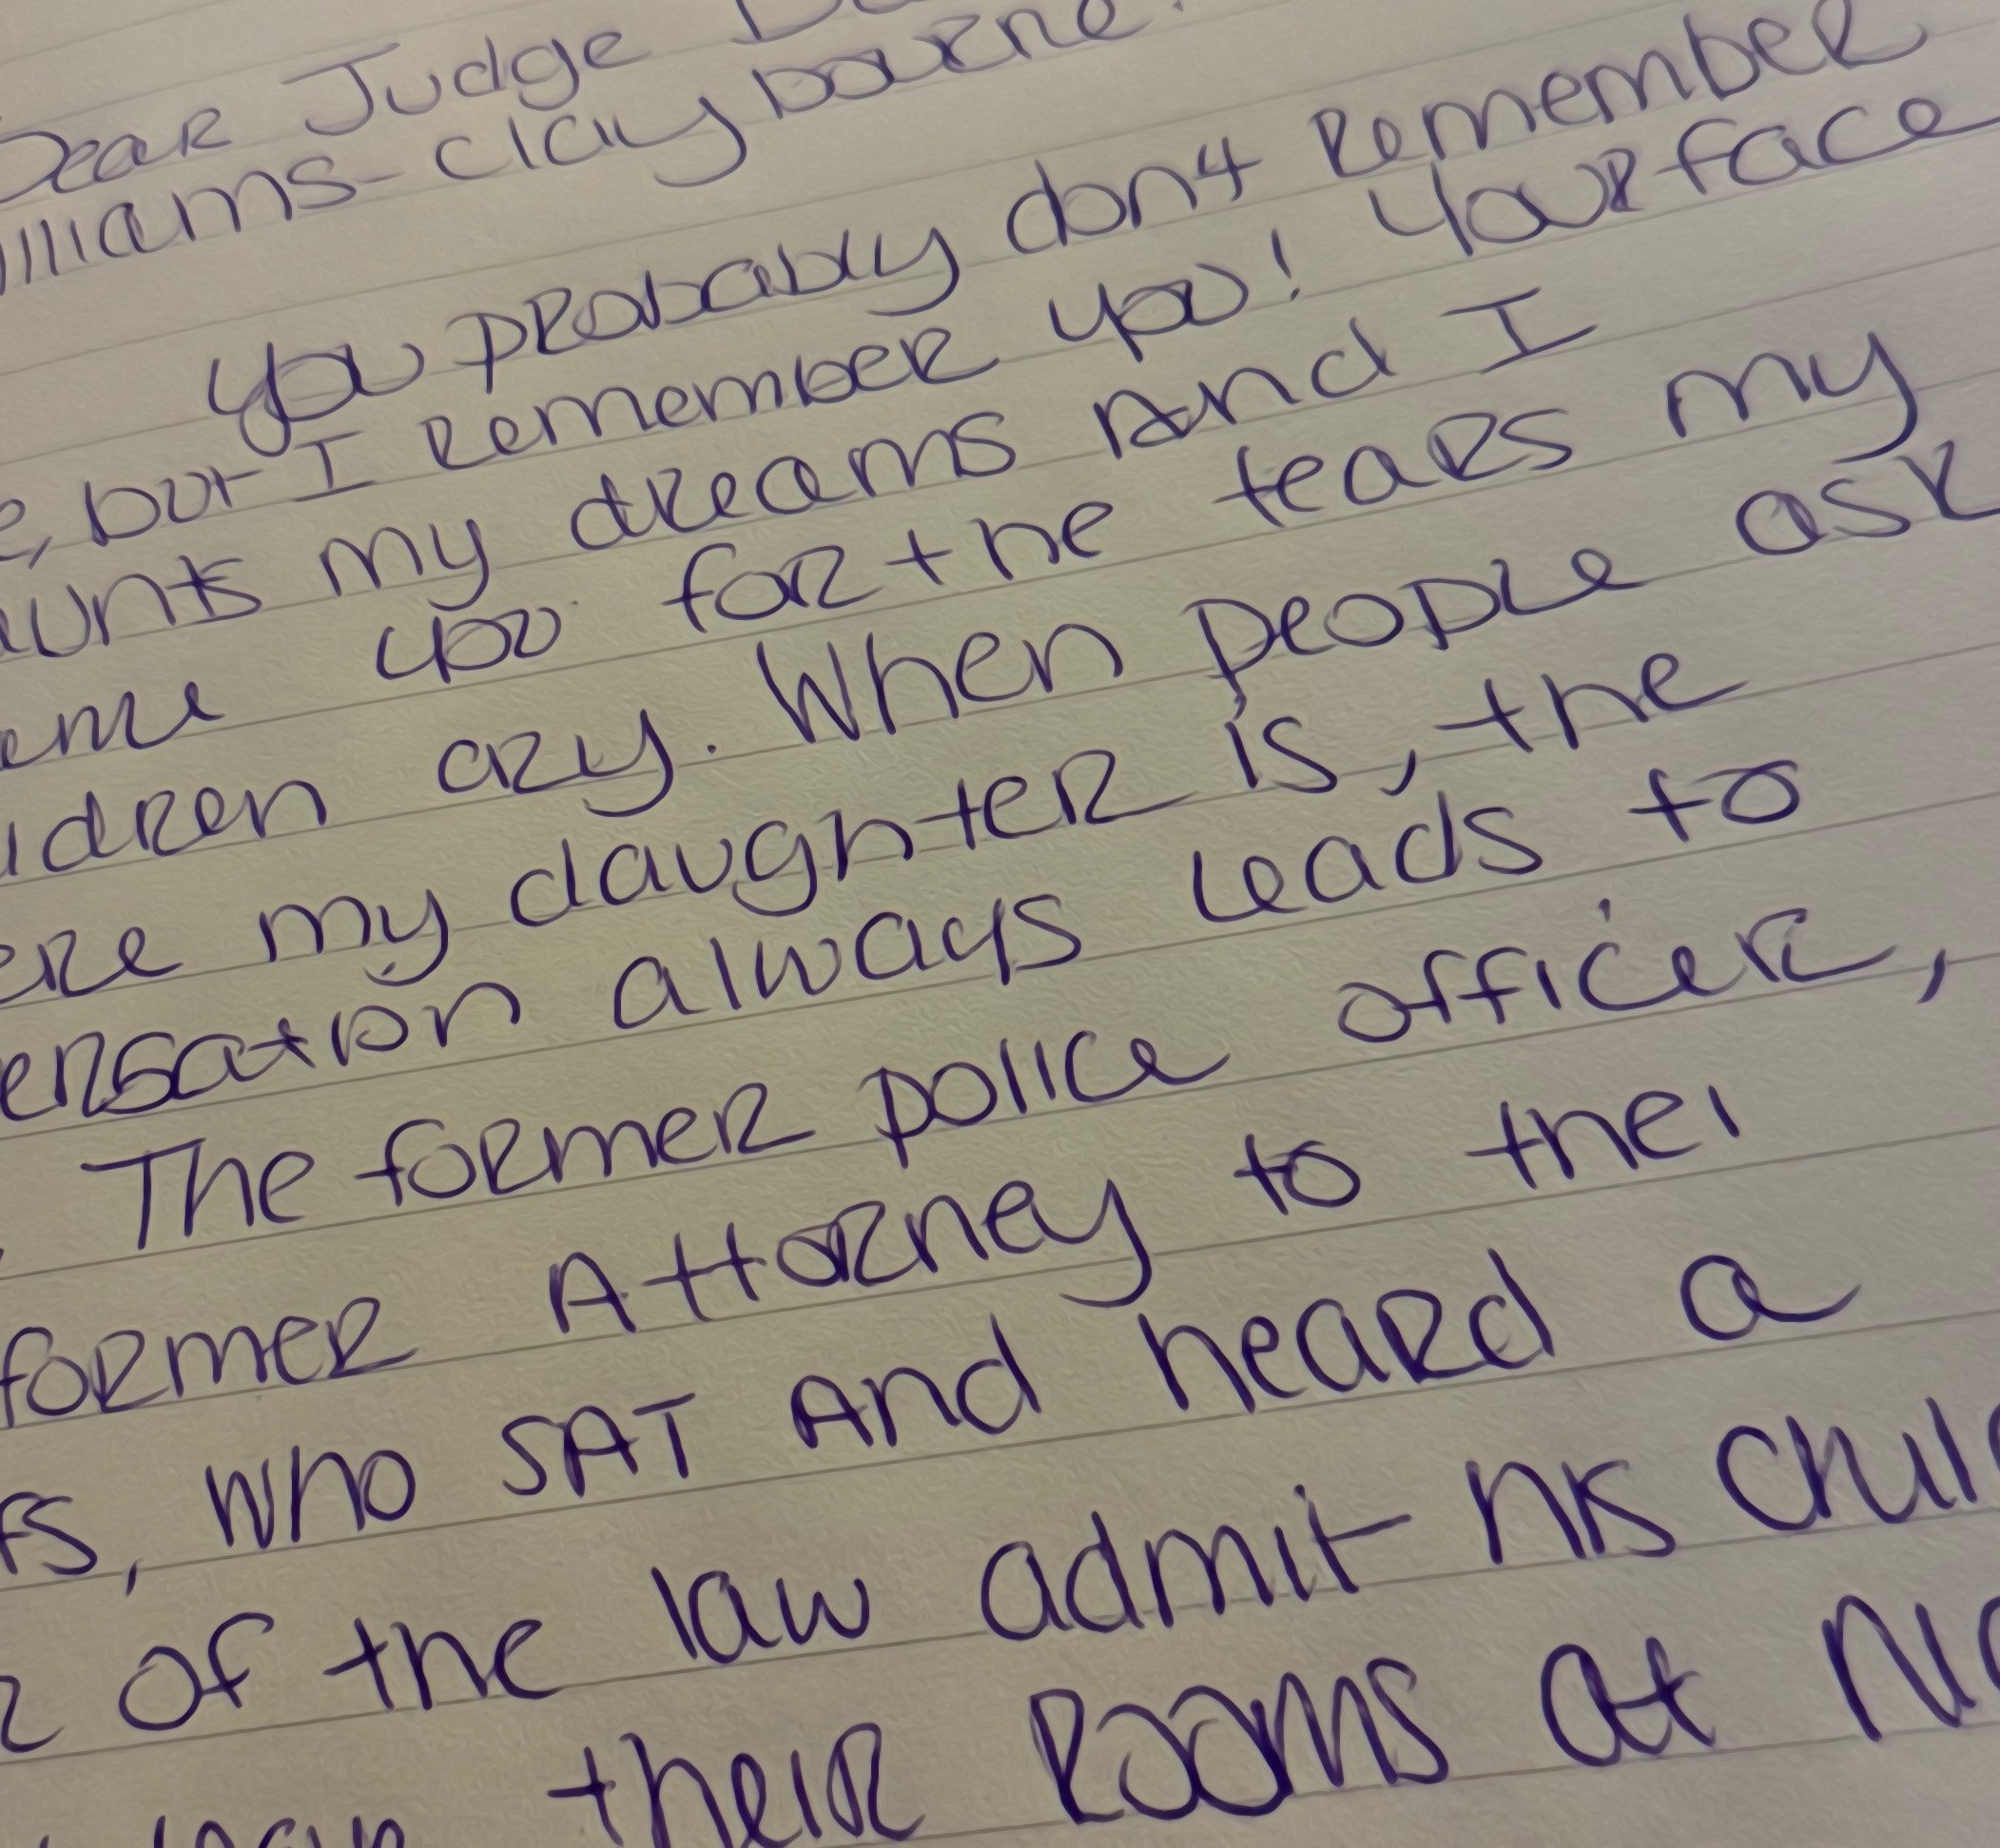 Dear Judge
lliams-claybourne.
you probably don't remember
e, but I remember you! Your face
aunts my dreams And I
ame you for the tears my
ildren cry. When people ask
ere my daughter is, the
ersation always leads to
. The former police officer,
former Attorney to thei
fs, who SAT And heard a
r of the law admit his chil
their rooms at Ni